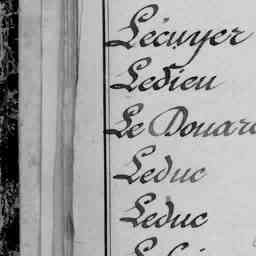 Lécuyer
Ledieu
Le Douar
Leduc
Leduc